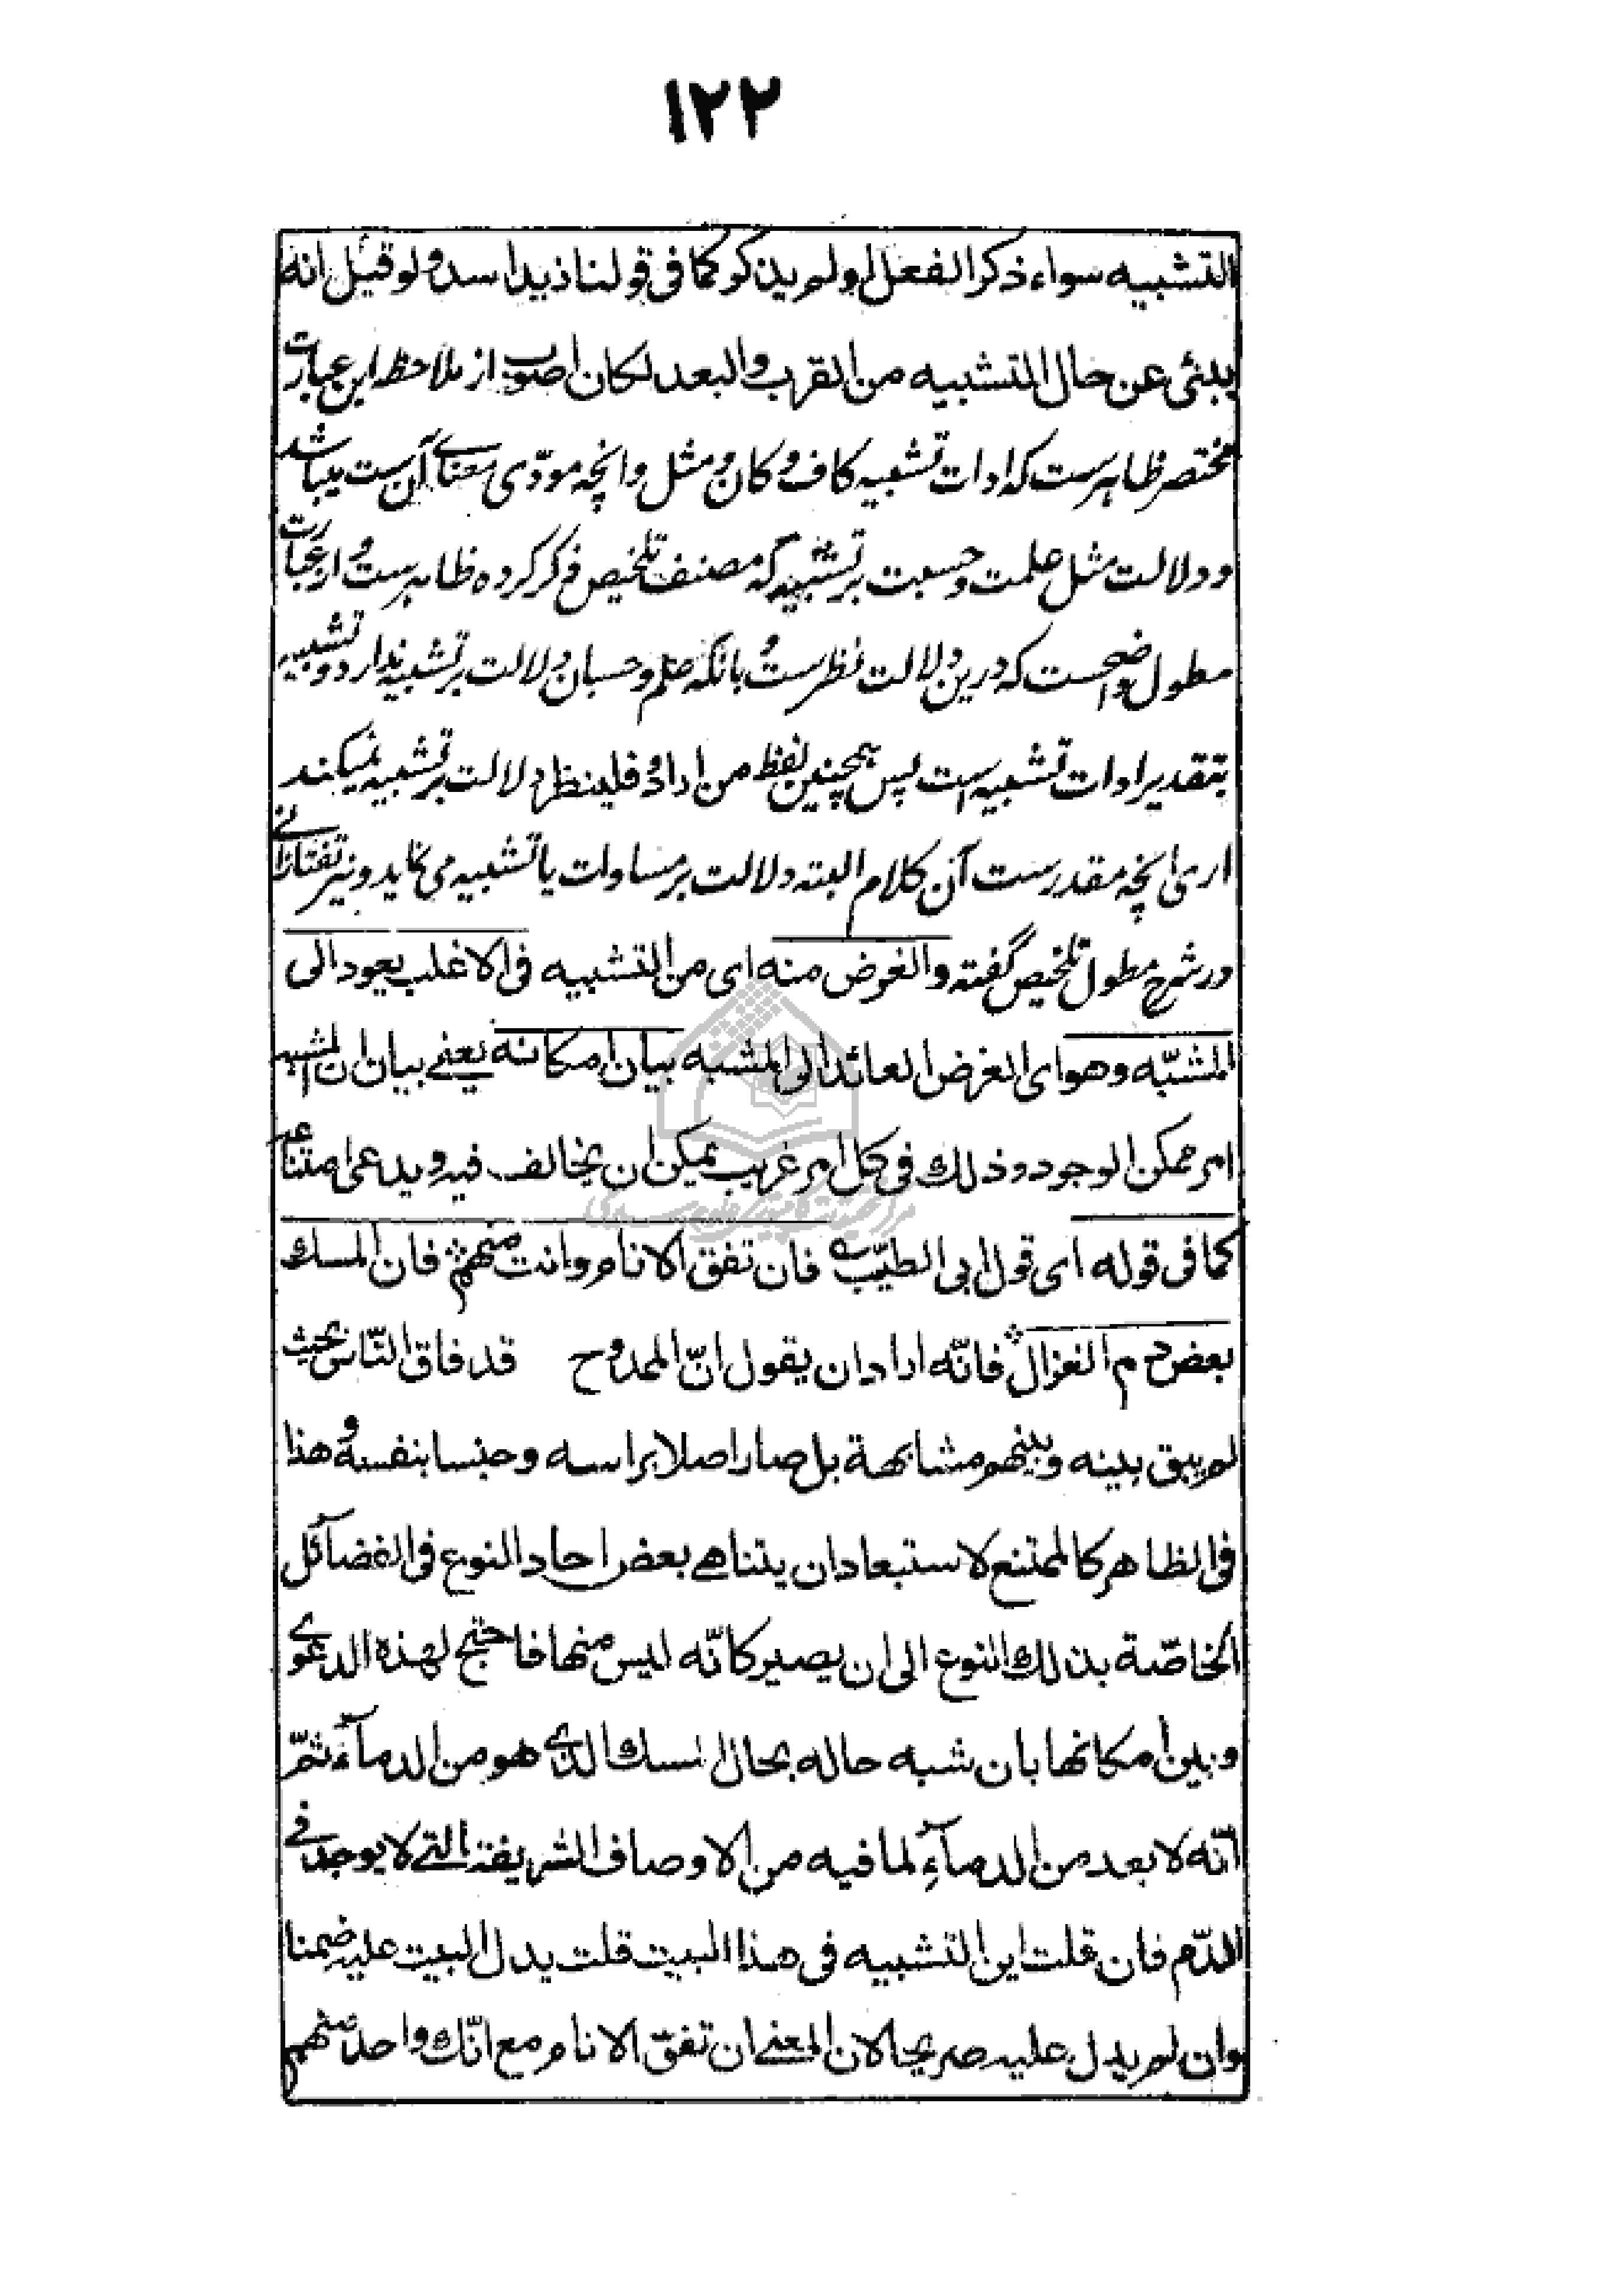 ١٢٢
التشبيه سواء ذكر الفعل او لم يذكر كما فى قولنا زيد اسد ولو قيل انه
ينبئ عن حال التشبيه من القرب والبعد لكان اصوب از ملاحظه اين عبارت
مختصر ظاهرست كه ادات تشبيه كاف و كان و مثل وانچه مودّى معناے آن ست ميباشد
و دلالت مثل علمت وحسبت بر تشبيه كه مصنف تلخيص ذكر كرده ظاهرست و از عبارت
مطول واضحست كه درين دلالت نظرست بانكه علم وحسبان دلالت بر تشبيه ندارد و تشبيه
بتقدير ادات تشبيه است پس همچنين لفظ من اداد فلينظر دلالت بر تشبيه نميكند
ارى انچه مقدرست آن كلام البته دلالت بر مساوات يا تشبيه مى نمايد ونيز تفتازانے
در شرح مطول تلخيص گفته والغرض منه اى من التشبيه فى الاغلب يعود الى
المشبّه وهو اى الغرض العائد الى المشبه بيان امكانه يعنے بيان ان المشبه
امر ممكن الوجود وذلك فى كل امر غريب يمكن ان يخالف فيه ويدعى امتناعه
كما فى قوله اى قول ابى الطيّب فان تفق الانام وانت منهم فان المسك
بعض دم الغزال فانّه اراد ان يقول انّ الممدوح قد فاق النّاس بحيث
لم يبق بينه وبينهم مشابهة بل صار اصلا براسه وجنسا بنفسه وهذا
فى الظاهر كالممتنع لاستبعاد ان يتناهے بعض احاد النوع فى الفضائل
الخاصّة بذلك النوع الى ان يصير كانّه ليس منها فاحتج لهذه الدعوى
وبين امكانها بان شبه حاله بحال المسك الذى هو من الدماء ثمّ
انّه لا يعد من الدماء لما فيه من الاوصاف الشريفة التے لا يوجد فى
الدّم فان قلت اين التشبيه فى هذا البيت قلت يدل البيت عليه ضمنا
وان لم يدل عليه صريحا لان المعنے ان تفق الانام مع انّك واحد منهم